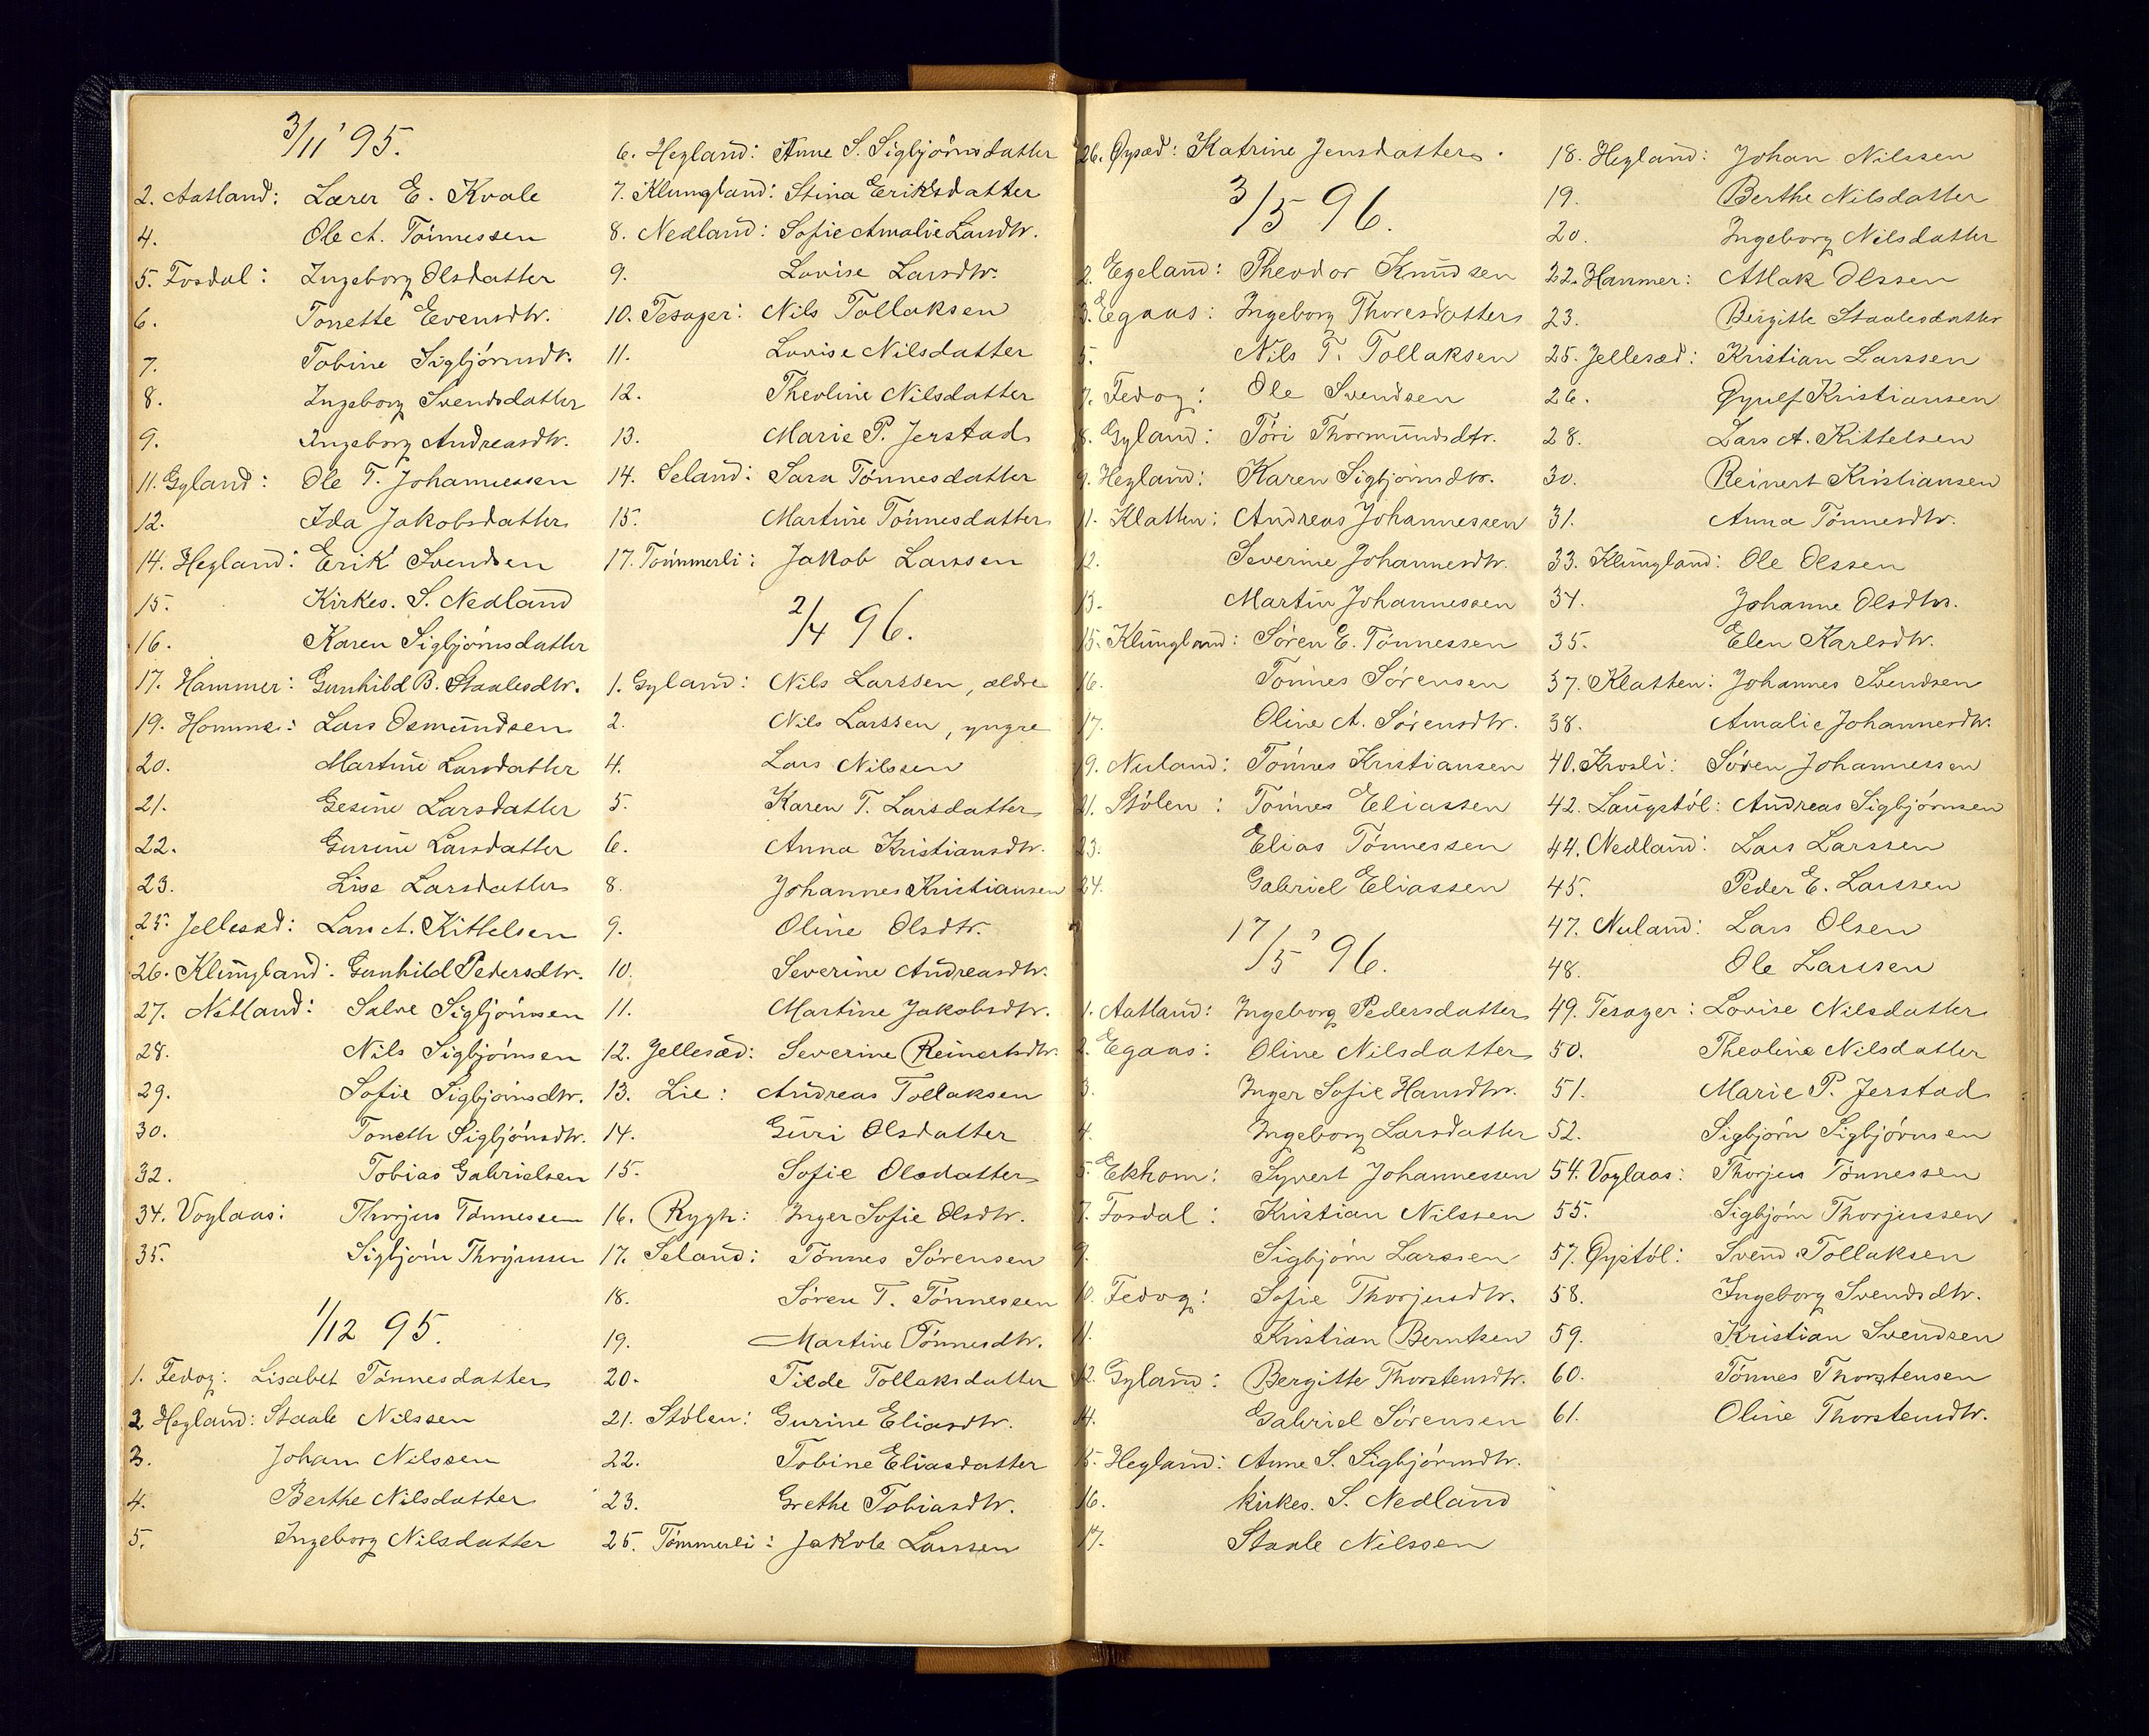 3/11 '95.
2. Aatland: Lærer E. Kvale
4. Ole A. Tönnessen
5. Fosdal: Ingeborg Olsdatter
6. Tonette Evensdtr.
7. Tobine Sigbjörnsdtr.
8. Ingeborg Svendsdatter
9. Ingeborg Andreasdtr.
11. Gyland: Ole T. Johannessen
12. Ida Jakobsdatter
14. Hegland: Erik Svendsen
15. Kirkes. S. Nedland
16. Karen Sigbjörnsdatter
17. Hammer: Gunhild B. Staalesdtr.
19. Homme: Lars Osmundsen
20. Martine Larsdatter
21. Gesine Larsdatter
22. Gurine Larsdatter
23. Lise Larsdatter
25. Jellesæd: Lars A. Kittelsen
26. Klungland: Gunhild Pedersdtr.
27. Netland: Salve Sigbjörnsen
28. Nils Sigbjörnsen
29. Sofie Sigbjörnsdtr.
30. Toneth Sigbjörnsdtr.
32. Tobias Gabrielsen
34. Voglaas: Thorjus Tönnessen
35. Sigbjörn Thorjussen
1/12 95.
1. Fedog: Lisabet Tönnesdatter
2. Hegland: Staale Nilssen
3. Johan Nilssen
4. Berthe Nilsdatter
5. Ingeborg Nilsdatter
6. Hegland: Anne S. Sigbjörnsdatter
7. Klungland: Stina Eriksdatter
8. Nedland: Sofie Amalie Larsdtr.
9. Lovise Larsdtr.
10. Tesager: Nils Tollaksen
11. Lovise Nilsdatter
12. Theoline Nilsdatter
13. Marie P. Jerstad
14. Seland: Sara Tönnesdatter
15. Martine Tönnesdatter
17. Tömmerli: Jakob Larssen
2/4 96.
1. Gyland: Nils Larssen, ældre
2. Nils Larssen, yngre
4. Lars Nilssen
5. Karen T. Larsdatter
6. Anna Kristiansdtr.
8. Johannes Kristiansen
9. Oline Olsdtr.
10. Severine Andreasdtr.
11. Martine Jakobsdtr.
12. Jellesæd: Severine Reinertsdtr.
13. Lie: Andreas Tollaksen
14. Guri Olsdatter
15. Sofie Olsdatter
16. Rygh: Inger Sofie Olsdtr.
17. Seland: Tönnes Sörensen
18. Sören T. Tönnessen
19. Martine Tönnesdtr.
20. Tilde Tollaksdatter
21. Stölen: Gurine Eliasdtr.
22. Tobine Eliasdatter
23. Grethe Tobiasdtr.
25. Tömmerli: Jakob Larssen
26. Øysæd: Katrine Jensdatter.
3/5 96.
2. Egeland: Theodor Knudsen
3. Egaas: Ingeborg Thoresdatter
5. Nils T. Tollaksen
7. Fedog: Ole Svendsen
8. Gyland: Töri Thormundsdtr.
9. Hegland: Karen Sigbjörnsdtr.
11. Klatten: Andreas Johannessen
12. Severine Johannesdtr.
13. Martin Johannessen
15. Klungland: Sören E. Tönnessen
16. Tönnes Sörensen
17. Oline A. Sörensdtr.
19. Nuland: Tönnes Kristiansen
21. Stölen: Tönnes Eliassen
23. Elias Tönnessen
24. Gabriel Eliassen
17/5 '96.
1. Aatland: Ingeborg Pedersdatter
2. Egaas: Oline Nilsdatter
3. Inger Sofie Hansdtr.
4. Ingeborg Larsdatter
5. Ekhom: Syvert Johannessen
7. Fosdal: Kristian Nilssen
9. Sigbjörn Larssen
10. Fedog: Sofie Thorjusdtr.
11. Kristian Berntsen
12. Gyland: Bergitte Thorstensdtr.
14. Gabriel Sörensen
15. Hegland: Anne S. Sigbjörnsdtr.
16. kirkes. S. Nedland
17. Staale Nilssen
18. Hegland: Johan Nilssen
19. Berthe Nilsdatter
20. Ingeborg Nilsdatter
22. Hammer: Atlak Olssen
23. Bergitte Staalesdatter
25. Jellesæd: Kristian Larssen
26. Gyulf Kristiansen
28. Lars A. Kittelsen
30. Reinert Kristiansen
31. Anna Tönnesdtr.
33. Klungland: Ole Olssen
34. Johanne Olsdtr.
35. Elen Karlsdtr.
37. Klatten: Johannes Svendsen
38. Amalie Johannesdtr.
40. Krosli: Sören Johannessen
42. Laugstöl: Andreas Sigbjörnsen
44. Nedland: Lars Larssen
45. Peder E. Larssen
47. Nuland: Lars Olsen
48. Ole Larssen
49. Tesager: Lovise Nilsdatter
50. Theoline Nilsdatter
51. Marie P. Jerstad
52. Sigbjörn Sigbjörnsen
54. Voglaas: Thorjus Tönnessen
55. Sigbjörn Thorjussen
57. Øystöl: Svend Tollaksen
58. Ingeborg Svendsdtr.
59. Kristian Svendsen
60. Tönnes Thorstensen
61. Oline Thorstensdtr.